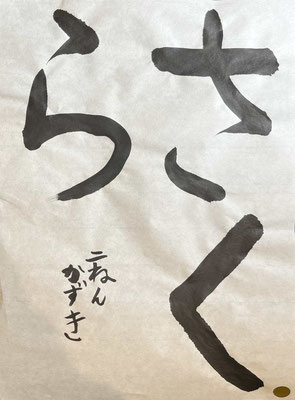 さく
ら
二ねん
かずき